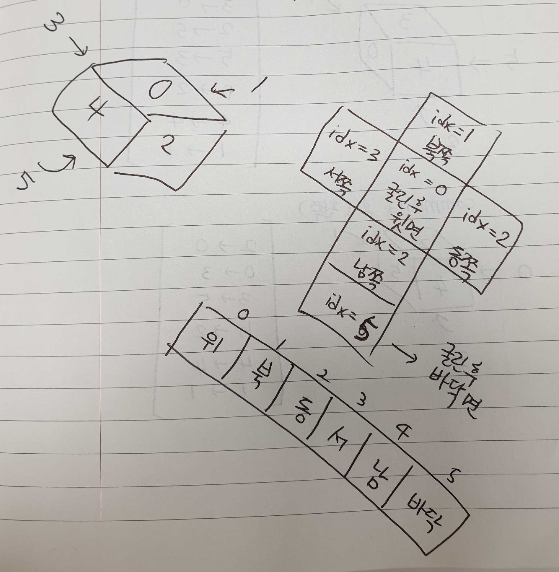 3
0
1
4
2
5
idx=1
북쪽
idx=3
서쪽
idx=0
굴린 후
윗면
idx=2
동쪽
idx=2
남쪽
idx=5
굴린 후
바닥면
0 1 2 3 4 5
위 북 동 서 남 바닥